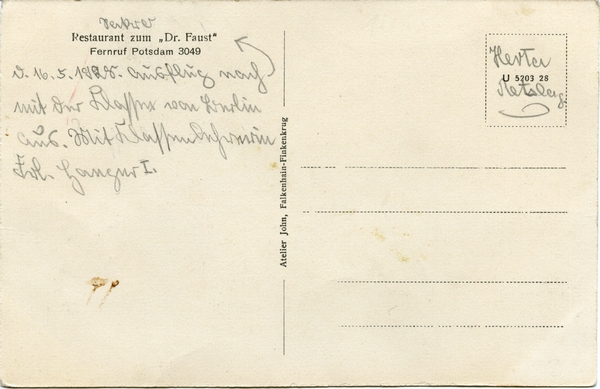 Restaurant zum „Dr. Faust"
Fernruf Potsdam 3049
d. 16. 5. Ausflug nach
mit der Klasse von Berlin
aus. Mit Klassenlehrerin
Frl. I.
Atelier John, Falkenhain-Finkenkrug
Herta
U 5203 28